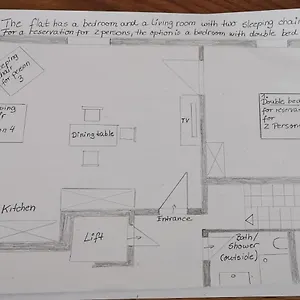 The flat has a bedroom and a living room with two sleeping chair
For a reservation for 2 persons, the option is a bedroom with double bed
chair
for person
3
4
Dining table
TV
Double bed
for reserva
for
2 Person
Kitchen
Lift
Entrance
Bath/
Shower
(outside)